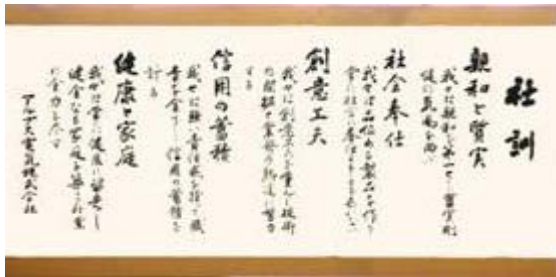 社訓
親和と質実
我々は親和を第一とし質実剛
健の気風を尚ぶ
社会奉仕
我々は品位ある製品を作り
常に社会に奉仕する
創意工夫
我々は創意工夫を重んじ技術
の開拓と業務の新進に努力
する
信用の蓄積
我々は強い責任感を持って職
責を全うし信用の蓄積を
計る
健康と家庭
我々は常に健康に留意し
健全なる家庭を築き
に全力を尽す
アルプス電気株式会社